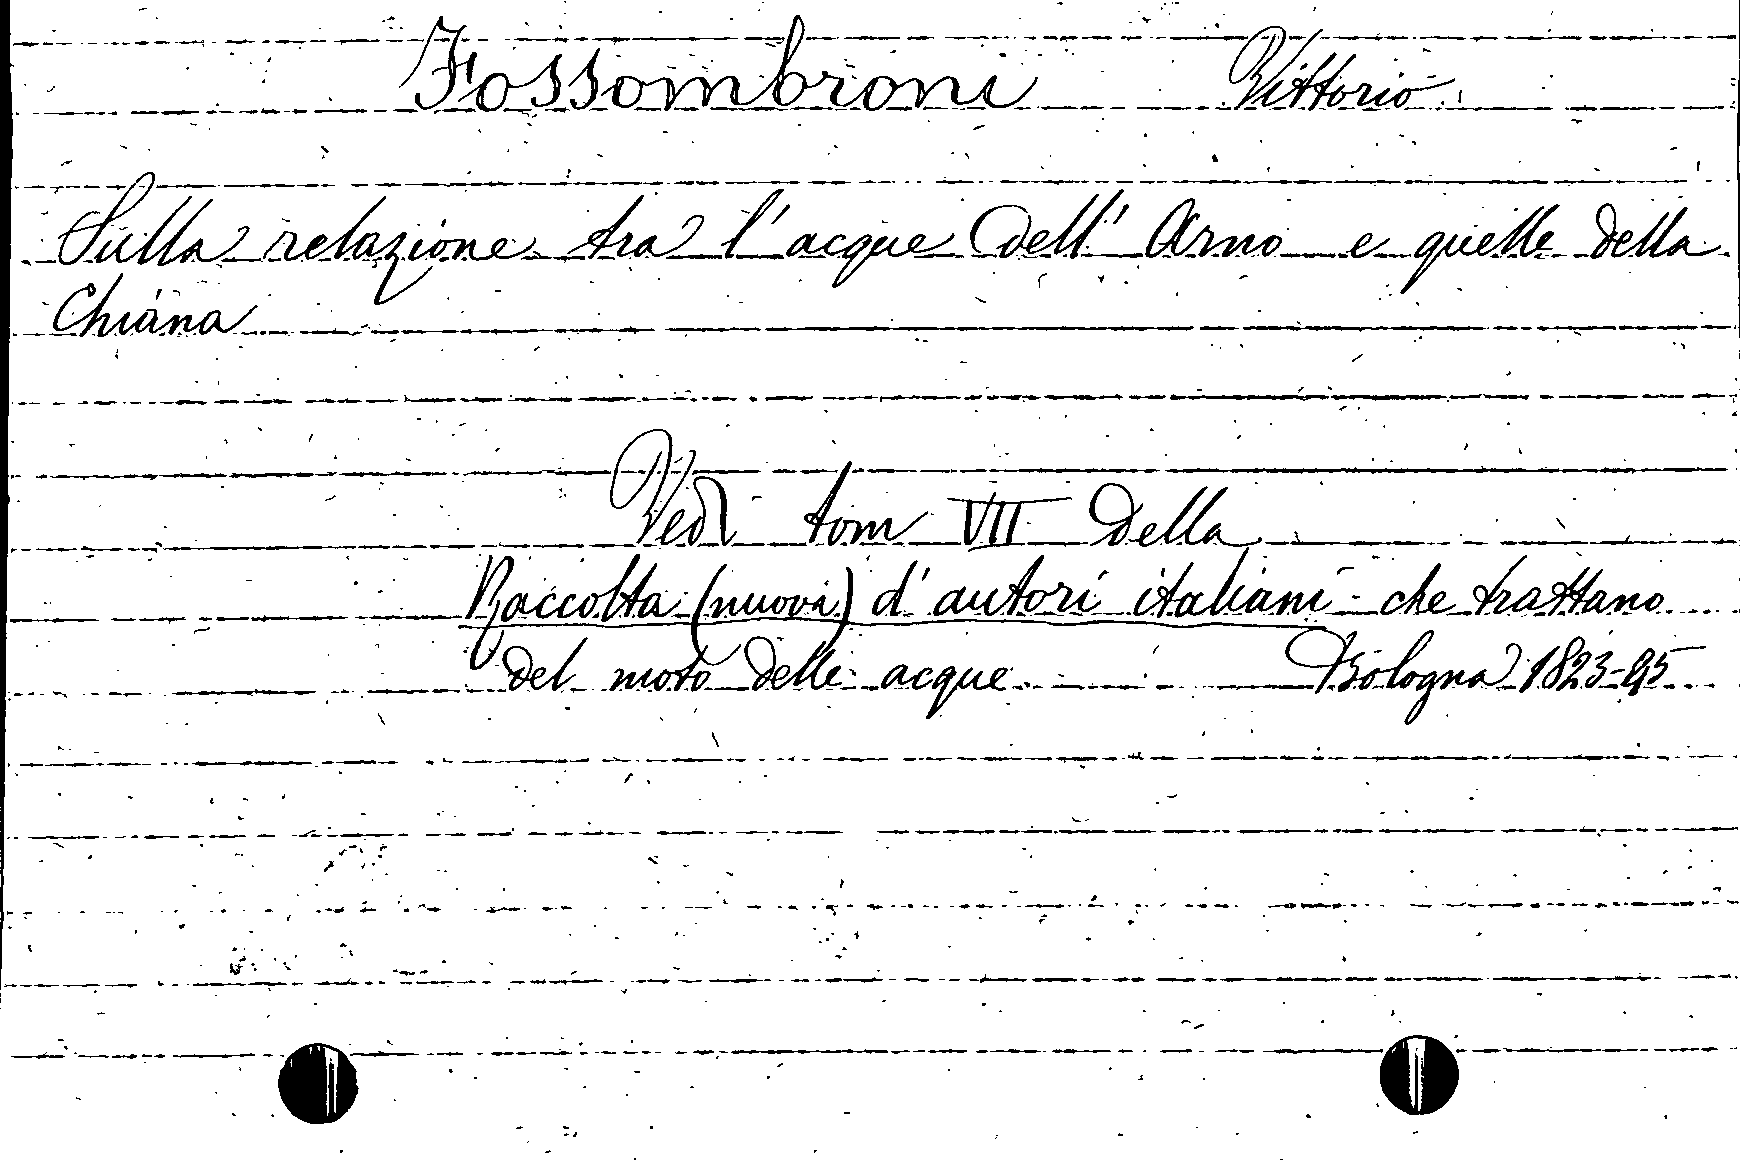 Fossombroni Vittorio
Sulla relazione tra l'acque dell' Arno e quelle della
Chiana
Vedi tom VII della
Raccolta (nuova) d'autori italiani che trattano
del moto delle acque Bologna 1823-45